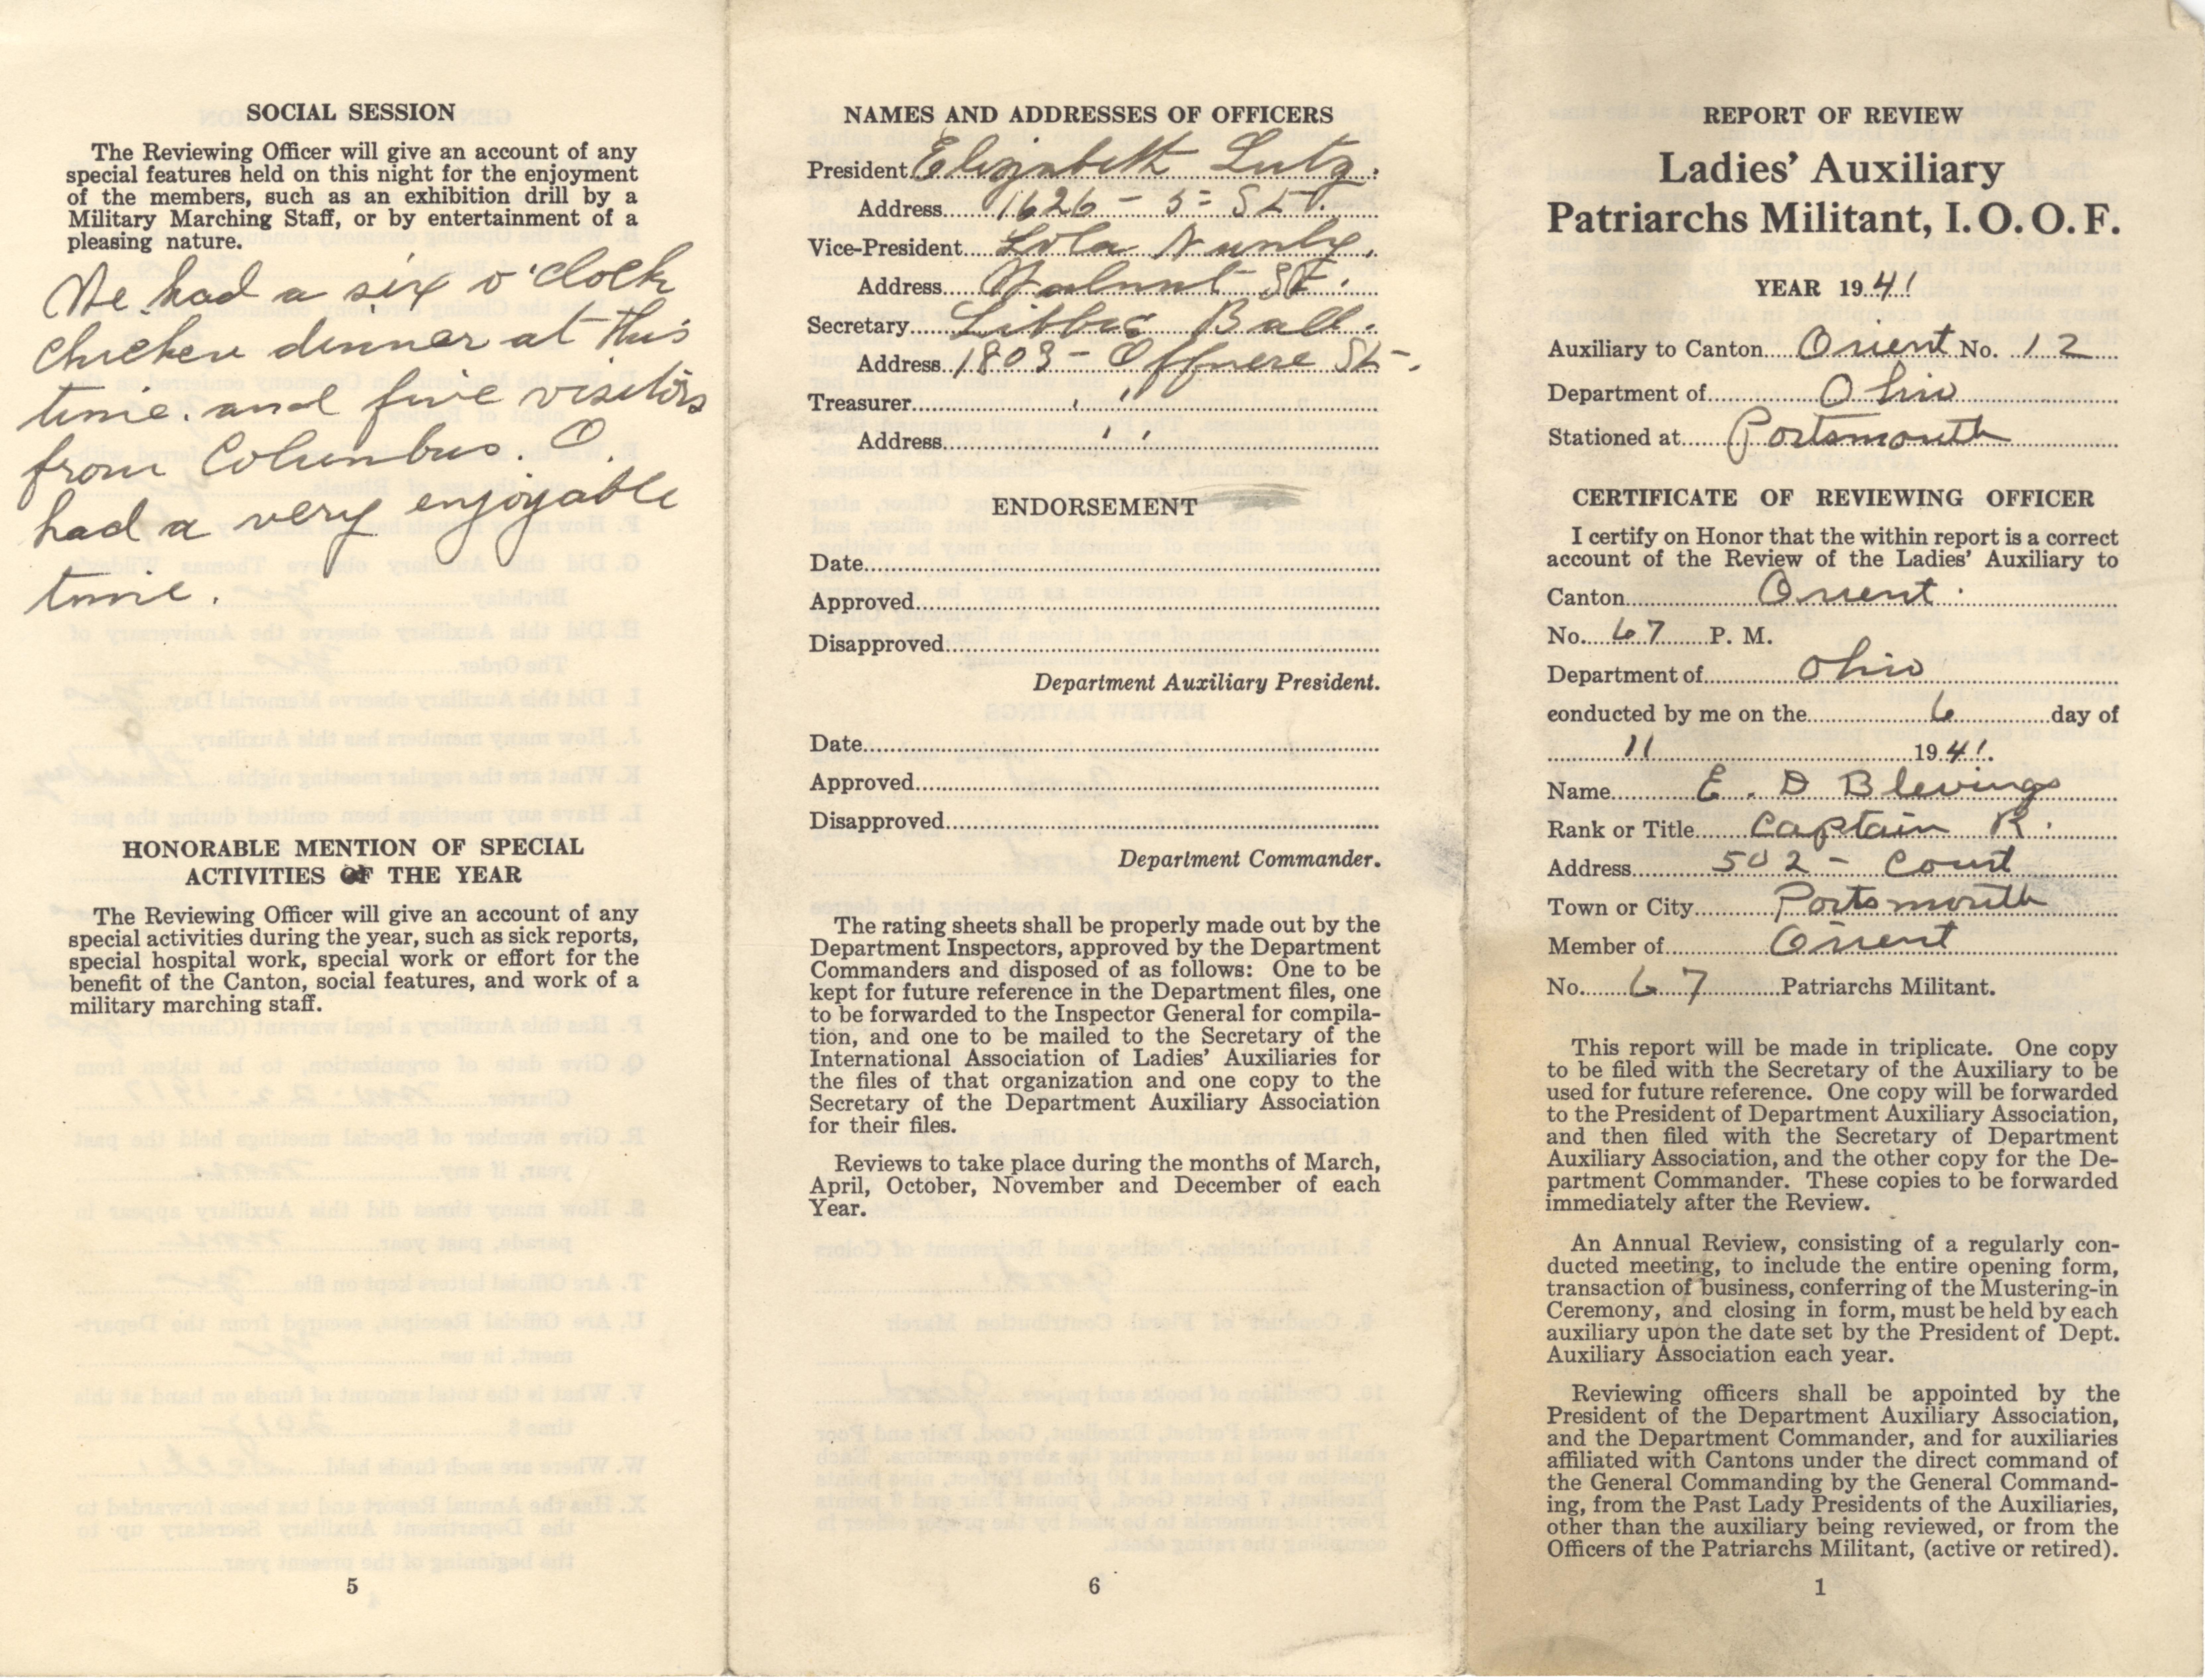 SOCIAL SESSION
The Reviewing Officer will give an account of any
special features held on this night for the enjoyment
of the members, such as an exhibition drill by a
Military Marching Staff, or by entertainment of a
pleasing nature.
We had a six o'clock
chicken dinner at this
time. and five visitors
from Columbus. O.
had a very enjoyable
time.
HONORABLE MENTION OF SPECIAL
ACTIVITIES OF THE YEAR
The Reviewing Officer will give an account of any
special activities during the year, such as sick reports,
special hospital work, special work or effort for the
benefit of the Canton, social features, and work of a
military marching staff.
5
NAMES AND ADDRESSES OF OFFICERS
President Elizabeth Lutz.
Address 1626 - 5 = St.
Vice-President Lola
Address Walnut St.
Secretary Ball.
Address 1803 - Offnere St.
Treasurer " "
Address " "
ENDORSEMENT
Date
Approved
Disapproved
Department Auxiliary President.
Date
Approved
Disapproved
Department Commander.
The rating sheets shall be properly made out by the
Department Inspectors, approved by the Department
Commanders and disposed of as follows: One to be
kept for future reference in the Department files, one
to be forwarded to the Inspector General for compila-
tion, and one to be mailed to the Secretary of the
International Association of Ladies' Auxiliaries for
the files of that organization and one copy to the
Secretary of the Department Auxiliary Association
for their files.
Reviews to take place during the months of March,
April, October, November and December of each
Year.
6
REPORT OF REVIEW
Ladies' Auxiliary
Patriarchs Militant, I. O. O. F.
YEAR 1941
Auxiliary to Canton Orient No. 12
Department of Ohio
Stationed at Portsmouth
CERTIFICATE OF REVIEWING OFFICER
I certify on Honor that the within report is a correct
account of the Review of the Ladies' Auxiliary to
Canton Orient
No. 67 P. M.
Department of Ohio
conducted by me on the 6 day of
11 1941.
Name E. D Blevings
Rank or Title Captain R.
Address 502 - Court
Town or City Portsmouth
Member of Orient
No. 67 Patriarchs Militant.
This report will be made in triplicate. One copy
to be filed with the Secretary of the Auxiliary to be
used for future reference. One copy will be forwarded
to the President of Department Auxiliary Association,
and then filed with the Secretary of Department
Auxiliary Association, and the other copy for the De-
partment Commander. These copies to be forwarded
immediately after the Review.
An Annual Review, consisting of a regularly con-
ducted meeting, to include the entire opening form,
transaction of business, conferring of the Mustering-in
Ceremony, and closing in form, must be held by each
auxiliary upon the date set by the President of Dept.
Auxiliary Association each year.
Reviewing officers shall be appointed by the
President of the Department Auxiliary Association,
and the Department Commander, and for auxiliaries
affiliated with Cantons under the direct command of
the General Commanding by the General Command-
ing, from the Past Lady Presidents of the Auxiliaries,
other than the auxiliary being reviewed, or from the
Officers of the Patriarchs Militant, (active or retired).
1